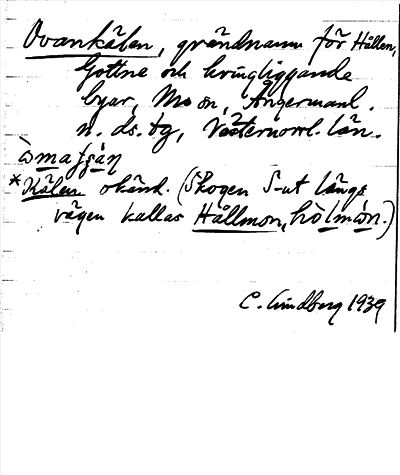 Ovankälen, grändnamn för Hållen,
Gottne och kringliggande
byar, Mo sn, Ångermanl.
n. ds. tg, Västernorrl. län.
*Kälen okänd. (Skogen S-ut längs
vägen kallas Hållmon, hòlmòn.)
C. Lindberg 1939